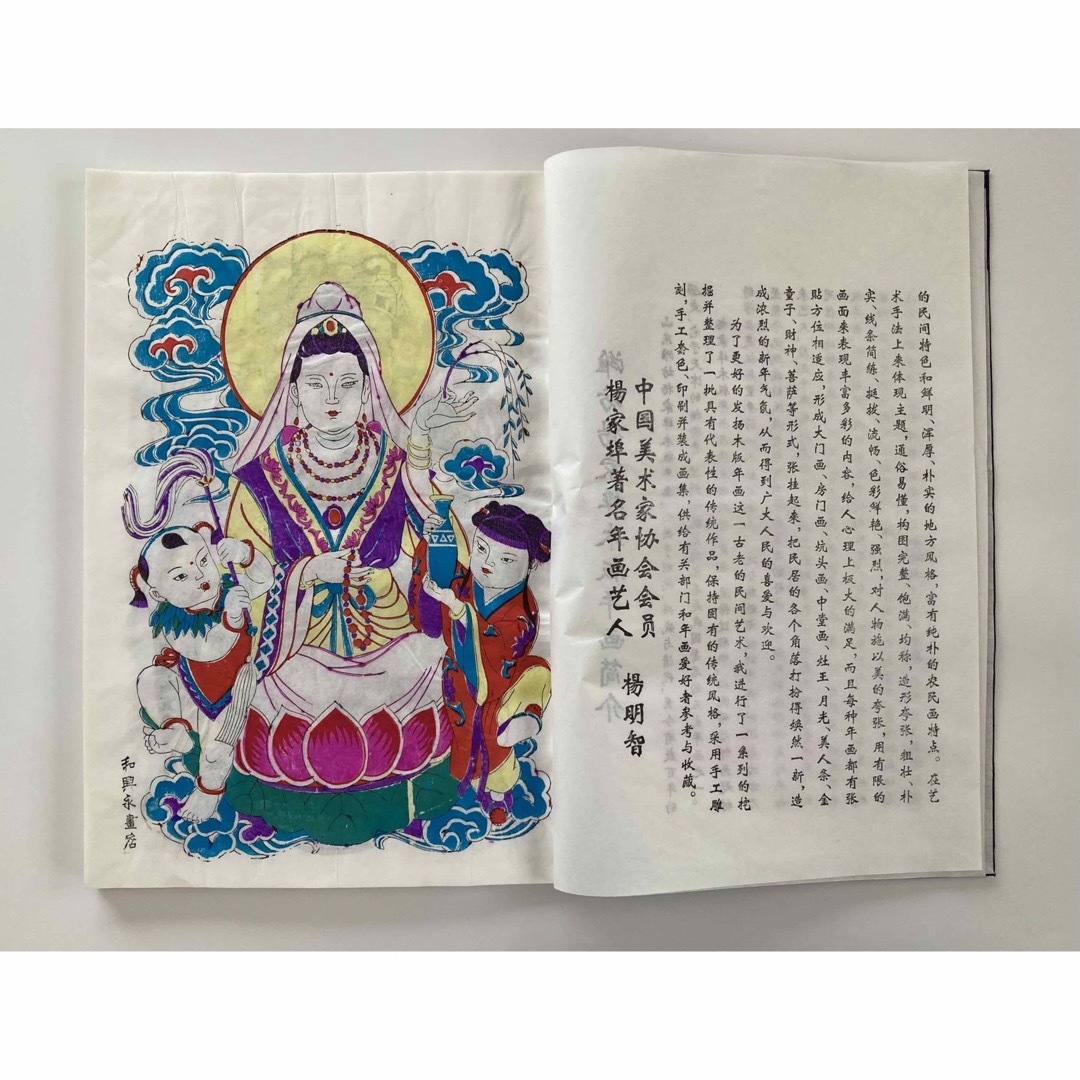 的民间特色和鲜明、浑厚、朴实的地方风格,富有纯朴的农民画特点。在艺
术手法上来体现主题,通俗易懂,构图完整、饱满、均称,造形夸张,粗壮、朴
实、线条简练、挺拔、流畅,色彩鲜艳、强烈,对人物施以美的夸张,用有限的
画面来表现丰富多彩的内容,给人心理上极大的满足,而且每种年画都有张
贴方位相适应,形成大门画、房门画、坑头画、中堂画、灶王、月光、美人条、金
童子、财神、菩萨等形式,张挂起来,把民居的各个角落打扮得焕然一新,造
成浓烈的新年气氛,从而得到广大人民的喜爱与欢迎。
为了更好的发扬木版年画这一古老的民间艺术,我进行了一系列的挖
掘并整理了一批具有代表性的传统作品,保持固有的传统风格,采用手工雕
刻,手工套色、印刷并装成画集,供给有关部门和年画爱好者参考与收藏。
中国美术家协会会员
楊家埠著名年画艺人
楊明智
和興永畫店